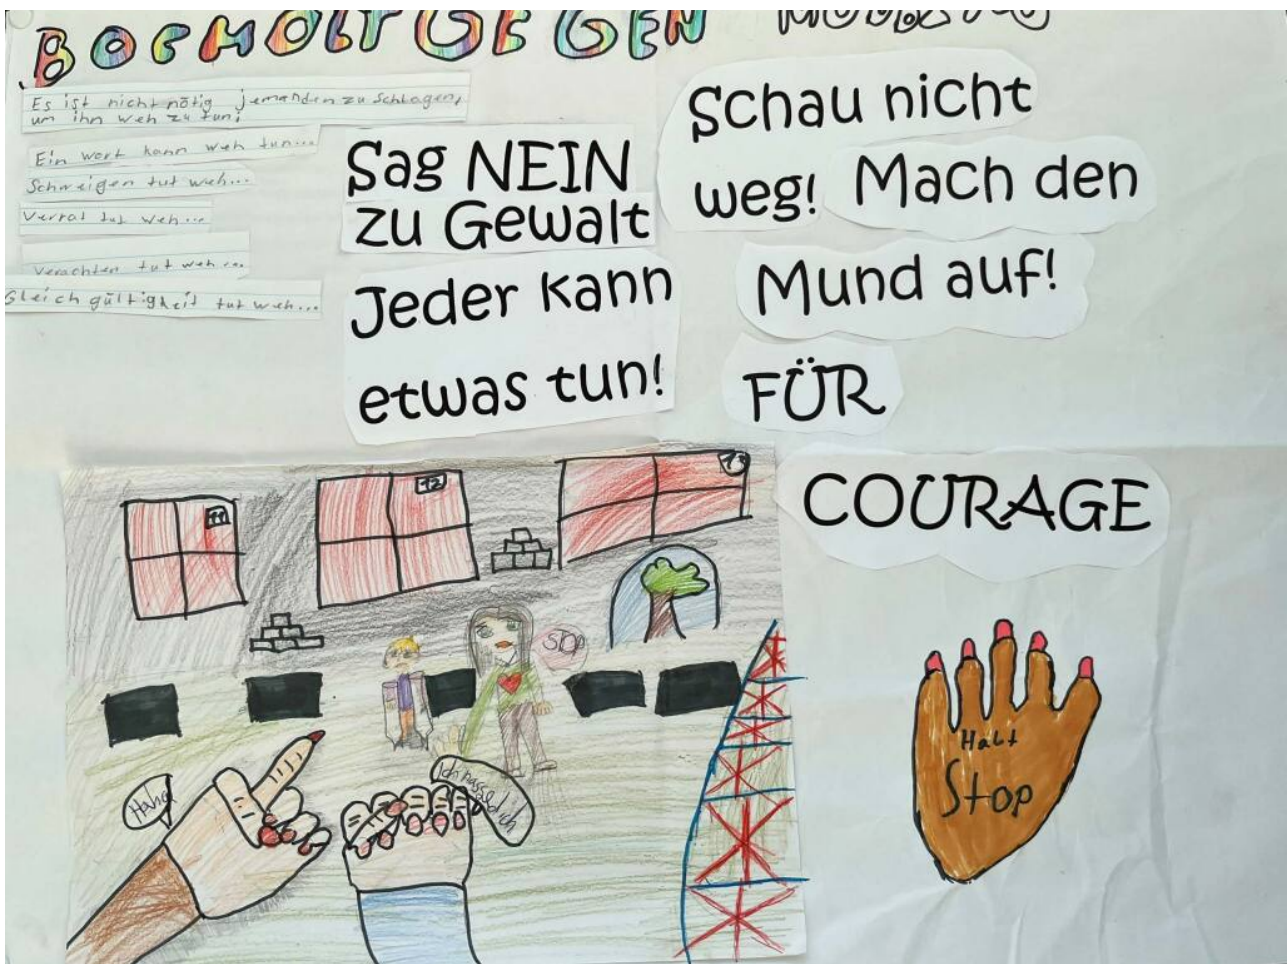 BOCHOLT GEGEN MOBBING
Es ist nicht nötig jemanden zu Schlagen,
um ihn weh zu tun!
Ein wort kann weh tun...
Schweigen tut weh...
Verrat tut weh...
Verachten tut weh...
Gleich gültigkeit tut weh...
Sag NEIN
zu Gewalt
Jeder kann
etwas tun!
Schau nicht
weg! Mach den
Mund auf!
FÜR
COURAGE
11
12
13
STOP
Haha
Ich hasse dich
Halt
Stop